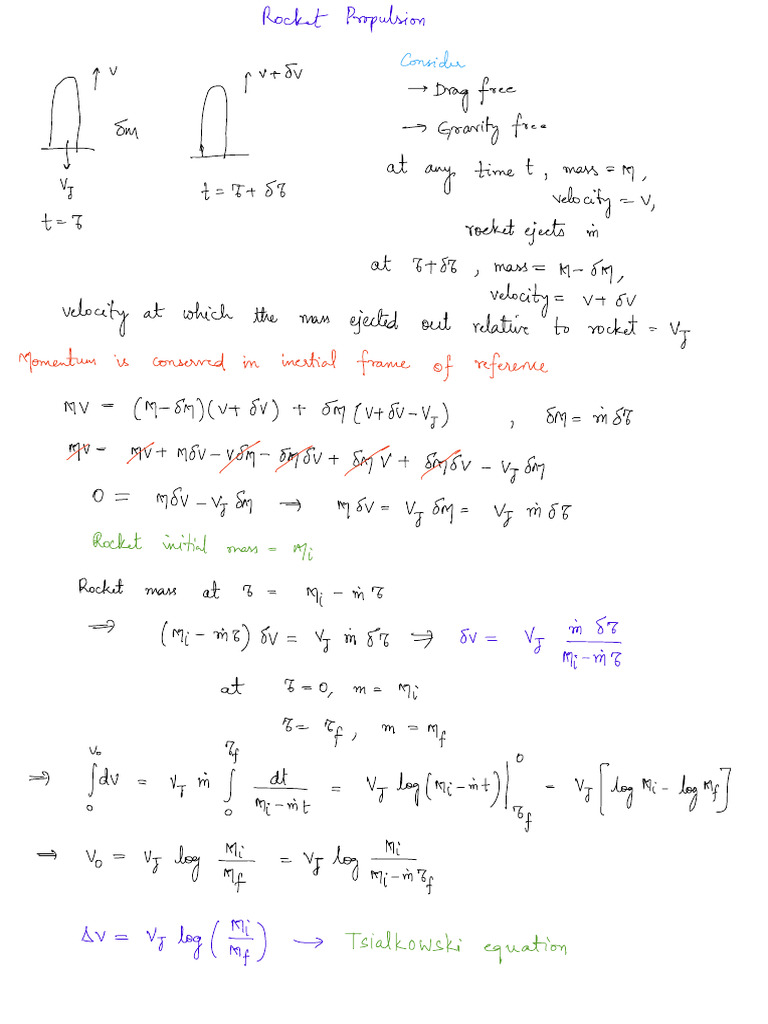 Rocket Propulsion
V
V+δV
δM
V_J
t = τ
t = τ + δτ
Consider
→ Drag free
→ Gravity free
at any time t, mass = M,
velocity = V,
rocket ejects ṁ
at τ+δτ, mass = M-δM,
velocity = V + δV
velocity at which the mass ejected out relative to rocket = V_J
Momentum is conserved in inertial frame of reference
MV = (M-δM)(V+δV) + δM(V+δV-V_J) , δM = ṁ δτ
MV = MV + MδV - VδM - δMδV + δM V + δMδV - V_J δM
0 = MδV - V_J δM → M δV = V_J δM = V_J ṁ δτ
Rocket initial mass = M_i
Rocket mass at τ = M_i - ṁ τ
⇒ (M_i - ṁτ) δV = V_J ṁ δτ ⇒ δV = V_J ṁ δτ / (M_i - ṁτ)
at τ = 0, m = M_i
τ = τ_f, m = M_f
⇒ ∫_0^{V_0} dV = V_J ṁ ∫_0^{τ_f} dt / (M_i - ṁt) = V_J log(M_i - ṁt) |_{τ_f}^0 = V_J [log M_i - log M_f]
⇒ V_0 = V_J log M_i / M_f = V_J log M_i / (M_i - ṁτ_f)
ΔV = V_J log(M_i / M_f) → Tsialkowski equation